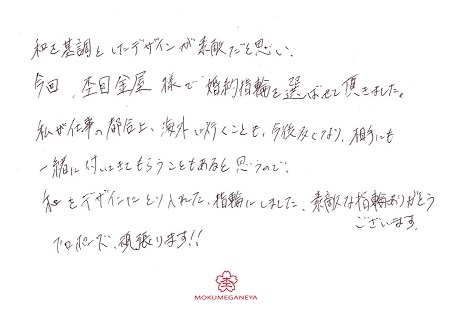 和を基調としたデザインが素敵だと思い、
今回、杢目金屋様で婚約指輪を選ばせて頂きました。
私が仕事の都合上、海外に行くことも、今後多くなり、相手にも
一緒に付いてきてもらうこともあると思うので、
和をデザインにとり入れた、指輪にしました。素敵な指輪ありがとう
ございます。
プロポーズ、頑張ります!!
MOKUMEGANEYA